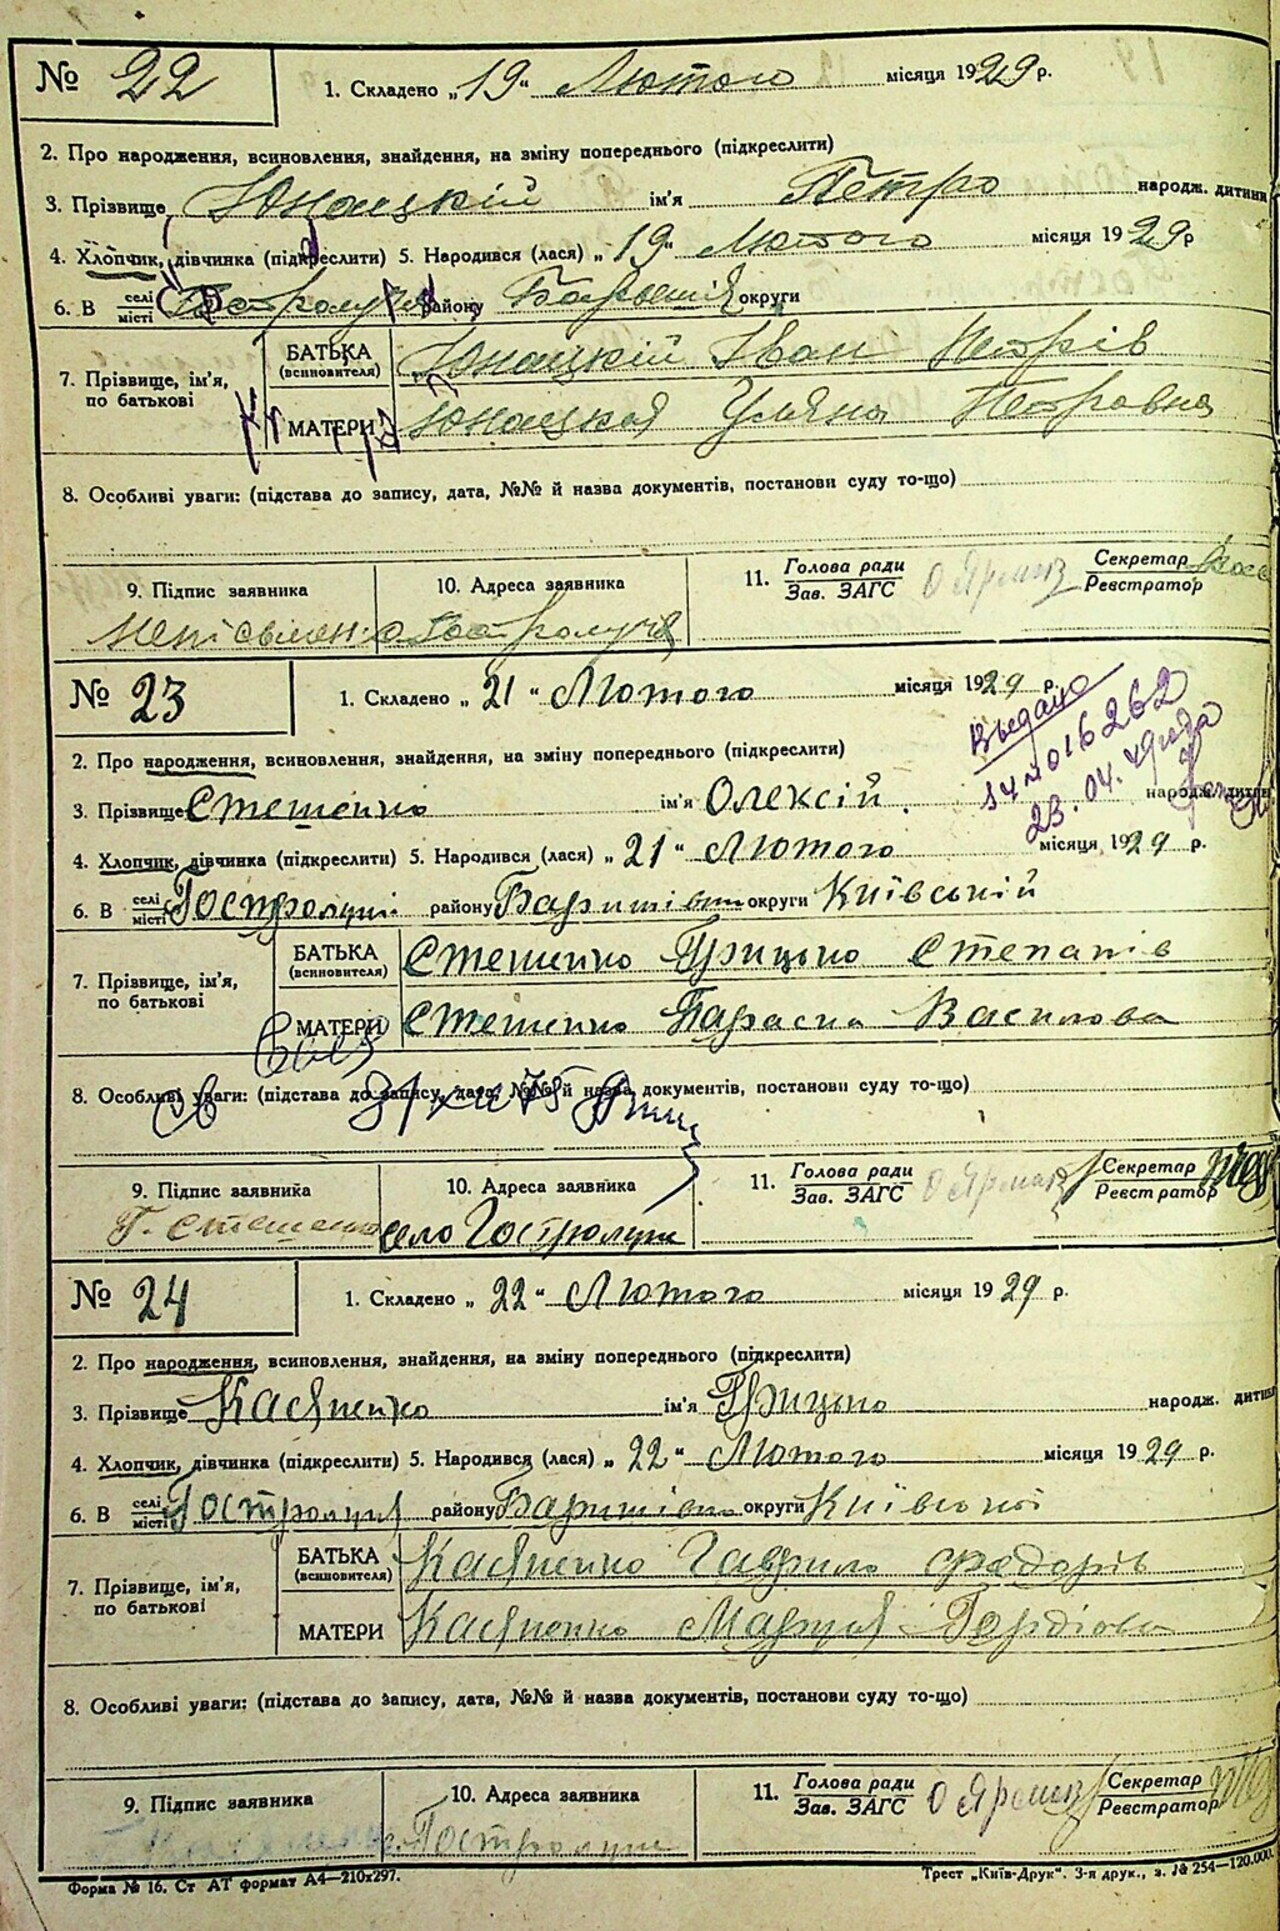 № 22
1. Складено „19“ Лютого місяця 1929 р.
2. Про народження, всиновлення, знайдення, на зміну попереднього (підкреслити)
3. Прізвище Юнацкій ім'я Петро народж. дитини
4. Хлопчик, дівчинка (підкреслити) 5. Народився (лася) „19“ Лютого місяця 1929 р
6. В селі/місті району округи
7. Прізвище, ім'я, по батькові
БАТЬКА (всиновителя) Юнацкій Іван Петрів
МАТЕРИ Юнацкая Уляна Петровна
8. Особливі уваги: (підстава до запису, дата, №№ й назва документів, постанови суду то-що)
9. Підпис заявника
10. Адреса заявника
11. Голова ради / Зав. ЗАГС О Ярмак Секретар / Реєстратор
№ 23
1. Складено „21“ Лютого місяця 1929 р.
Выдано
2. Про народження, всиновлення, знайдення, на зміну попереднього (підкреслити)
3. Прізвище Стешенко ім'я Олексій. народж. дитин
23.04.49 года
4. Хлопчик, дівчинка (підкреслити) 5. Народився (лася) „21“ Лютого місяця 1929 р.
6. В селі/місті Гостролуці району округи Київській
7. Прізвище, ім'я, по батькові
БАТЬКА (всиновителя) Стешенко Грицько Степанів
МАТЕРИ Стешенко Параска Василова
8. Особливі уваги: (підстава до запису, дата, №№ й назва документів, постанови суду то-що)
9. Підпис заявника
10. Адреса заявника
11. Голова ради / Зав. ЗАГС О Ярмак Секретар / Реєстратор
Г. Стешенко
село Гостролуци
№ 24
1. Складено „22“ Лютого місяця 1929 р.
2. Про народження, всиновлення, знайдення, на зміну попереднього (підкреслити)
3. Прізвище Касяненко ім'я Грицько народж. дитини
4. Хлопчик, дівчинка (підкреслити) 5. Народився (лася) „22“ Лютого місяця 1929 р.
6. В селі/місті району округи
7. Прізвище, ім'я, по батькові
БАТЬКА (всиновителя) Гаврило Федорів
МАТЕРИ Гордіова
8. Особливі уваги: (підстава до запису, дата, №№ й назва документів, постанови суду то-що)
9. Підпис заявника
10. Адреса заявника
11. Голова ради / Зав. ЗАГС О Ярмак Секретар / Реєстратор
с. Гостролуци
Форма № 16. Ст АТ формат А4—210x297.
Трест „Київ-Друк“. 3-я друк., з. № 254—120.000.